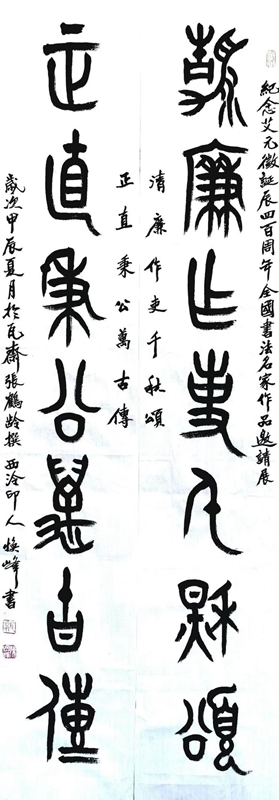 紀念艾元徵誕辰四百周年全國書法名家作品邀請展
清廉作吏千秋頌
清廉作吏千秋頌
正直秉公萬古傳
正直秉公萬古傳
歲次甲辰夏月於瓦齋張鶴齡撰西泠印人煥峰書